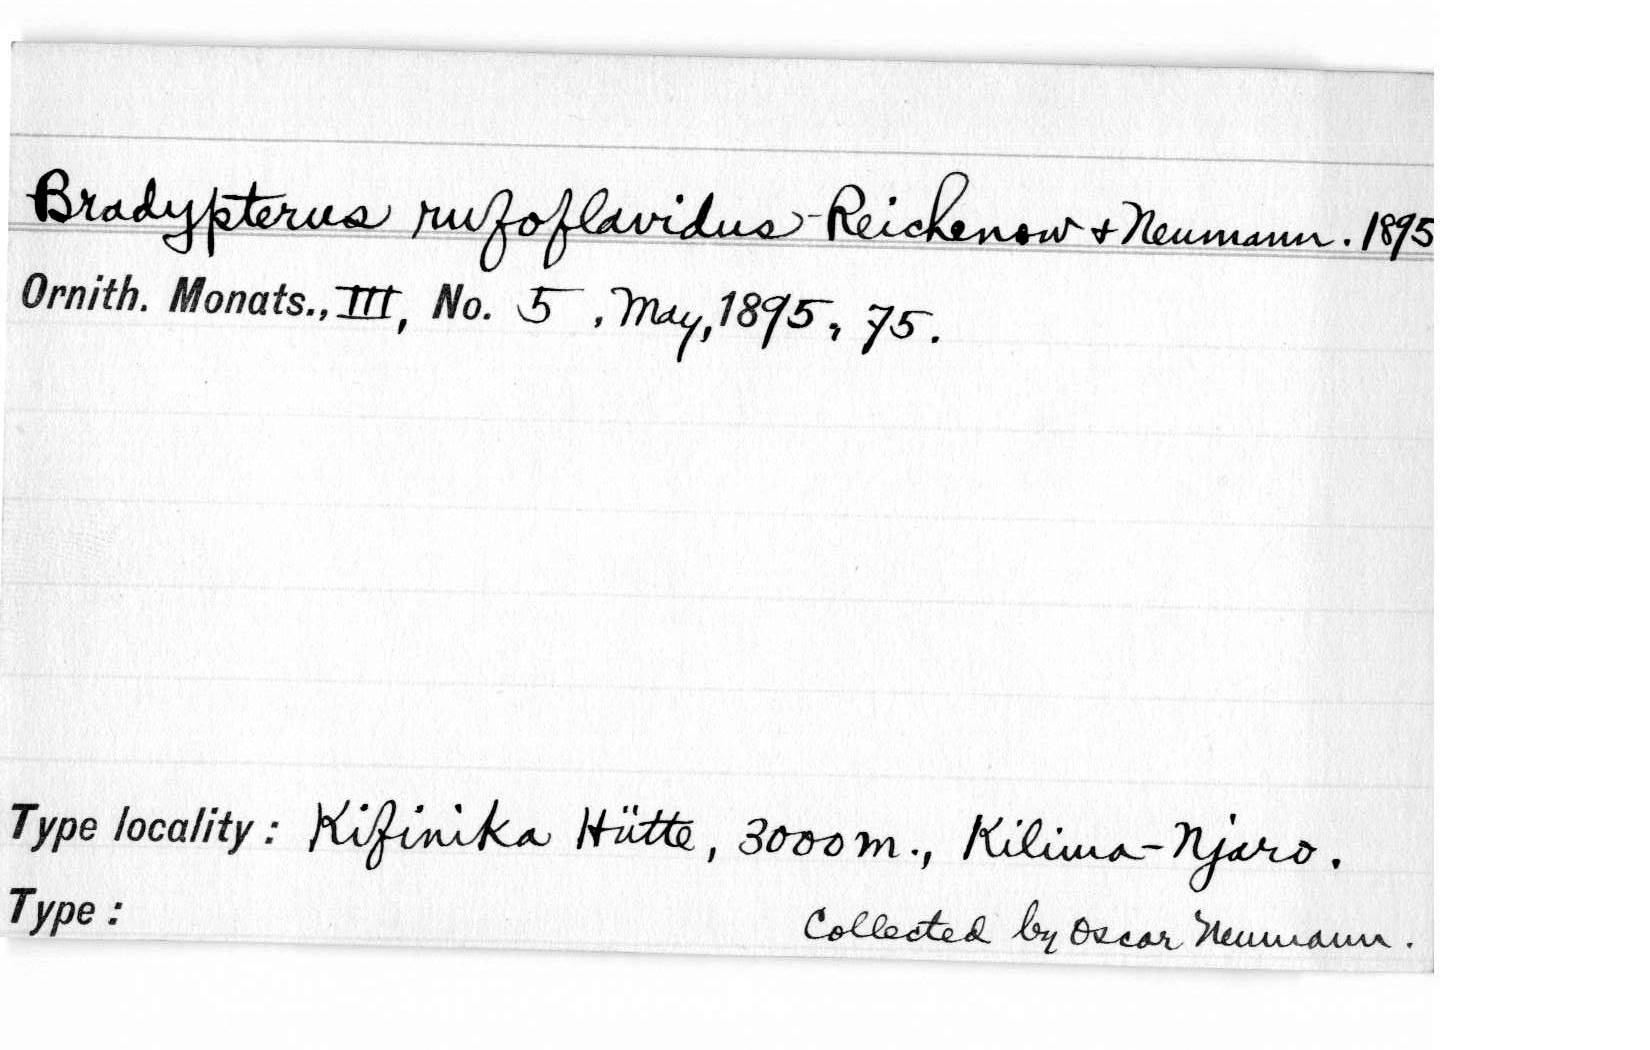 Bradypterus rufoflavidus - Reichenow + Neumann. 1895
Ornith. Monats., III, No. 5, May, 1895, 75.
Type locality: Kifinika Hütte, 3000 m., Kilima-Njaro.
Type:
Collected by Oscar Neumann.